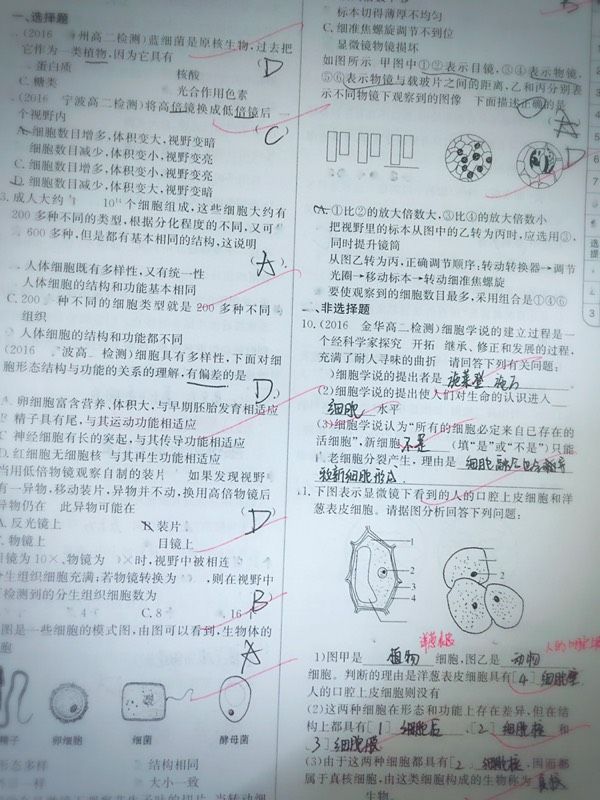 一、选择题
(2016 州高二检测)蓝细菌是原核生物,过去把
它作为一类植物,因为它具有
D
蛋白质 核酸
C. 糖类 光合作用色素
(2016 宁波高二检测)将高倍镜换成低倍镜后
个视野内
C
A. 细胞数目增多,体积变大,视野变暗
细胞数目减少,体积变小,视野变亮
C. 细胞数目增多,体积变小,视野变亮
D. 细胞数目减少,体积变大,视野变暗
3. 成人大约 10¹⁴个细胞组成,这些细胞大约有
200多种不同的类型,根据分化程度的不同,又可
600多种,但是都有基本相同的结构,这说明
(A)
人体细胞既有多样性,又有统一性
人体细胞的结构和功能基本相同
C. 200 种不同的细胞类型就是200多种不同
组织
人体细胞的结构和功能都不同
(2016 波高二检测)细胞具有多样性,下面对细
胞形态结构与功能的关系的理解,有偏差的是
D
A. 卵细胞富含营养、体积大,与早期胚胎发育相适应
B 精子具有尾,与其运动功能相适应
C 神经细胞有长的突起,与其传导功能相适应
D. 红细胞无细胞核 与其再生功能相适应
当用低倍物镜观察自制的装片 如果发现视野
有一异物,移动装片,异物并不动,换用高倍物镜后
异物仍在 此异物可能在
D
A. 反光镜上 B. 装片
物镜上 目镜上
目镜为10×、物镜为 ×时,视野中被相连
分生组织细胞充满;若物镜转换为 ,则在视野中
检测到的分生组织细胞数为
B
4 C. 8 16
图是一些细胞的模式图,由图可以看到,生物体的
胞
A
精子 卵细胞 细菌 酵母菌
形态多样 结构相同
一样 大小一致
标本切得薄厚不均匀
C. 细准焦螺旋调节不到位
显微镜物镜损坏
如图所示 甲图中①②表示目镜,③④表示物镜,
⑤⑥表示物镜与载玻片之间的距离,乙和丙分别表
示不同物镜下观察到的图像 下面描述正确的是
A
D
A. ①比②的放大倍数大,③比④的放大倍数小
把视野里的标本从图中的乙转为丙时,应选用③,
同时提升镜筒
从图乙转为丙,正确调节顺序:转动转换器→调节
光圈→移动标本→转动细准焦螺旋
要使观察到的细胞数目最多,采用组合是①④⑥
二、非选择题
10. (2016 金华高二检测)细胞学说的建立过程是一
个经科学家探究 开拓 继承、修正和发展的过程,
充满了耐人寻味的曲折 请回答下列有关问题:
)细胞学说的提出者是 施莱登 施旺
(2)细胞学说的提出使人们对生命的认识进入
细胞 水平
(3)细胞学说认为“所有的细胞必定来自己存在的
活细胞”,新细胞 不是 (填“是”或“不是”)只能
老细胞分裂产生,理由是
1. 下图表示显微镜下看到的人的口腔上皮细胞和洋
葱表皮细胞。请据图分析回答下列问题:
1
2
3
4
2
3
洋葱表皮
人的口腔
1)图甲是 植物 细胞,图乙是 动物
细胞。判断的理由是洋葱表皮细胞具有[4] 细胞壁
人的口腔上皮细胞则没有
(2)这两种细胞在形态和功能上存在差异,但在结
构上都具有[1] 细胞质、[2] 细胞核 和
3] 细胞膜
(3)由于这两种细胞都具有[2 细胞核,因而都
属于真核细胞,由这类细胞构成的生物称为 真核
生物
选
提
6
7
3